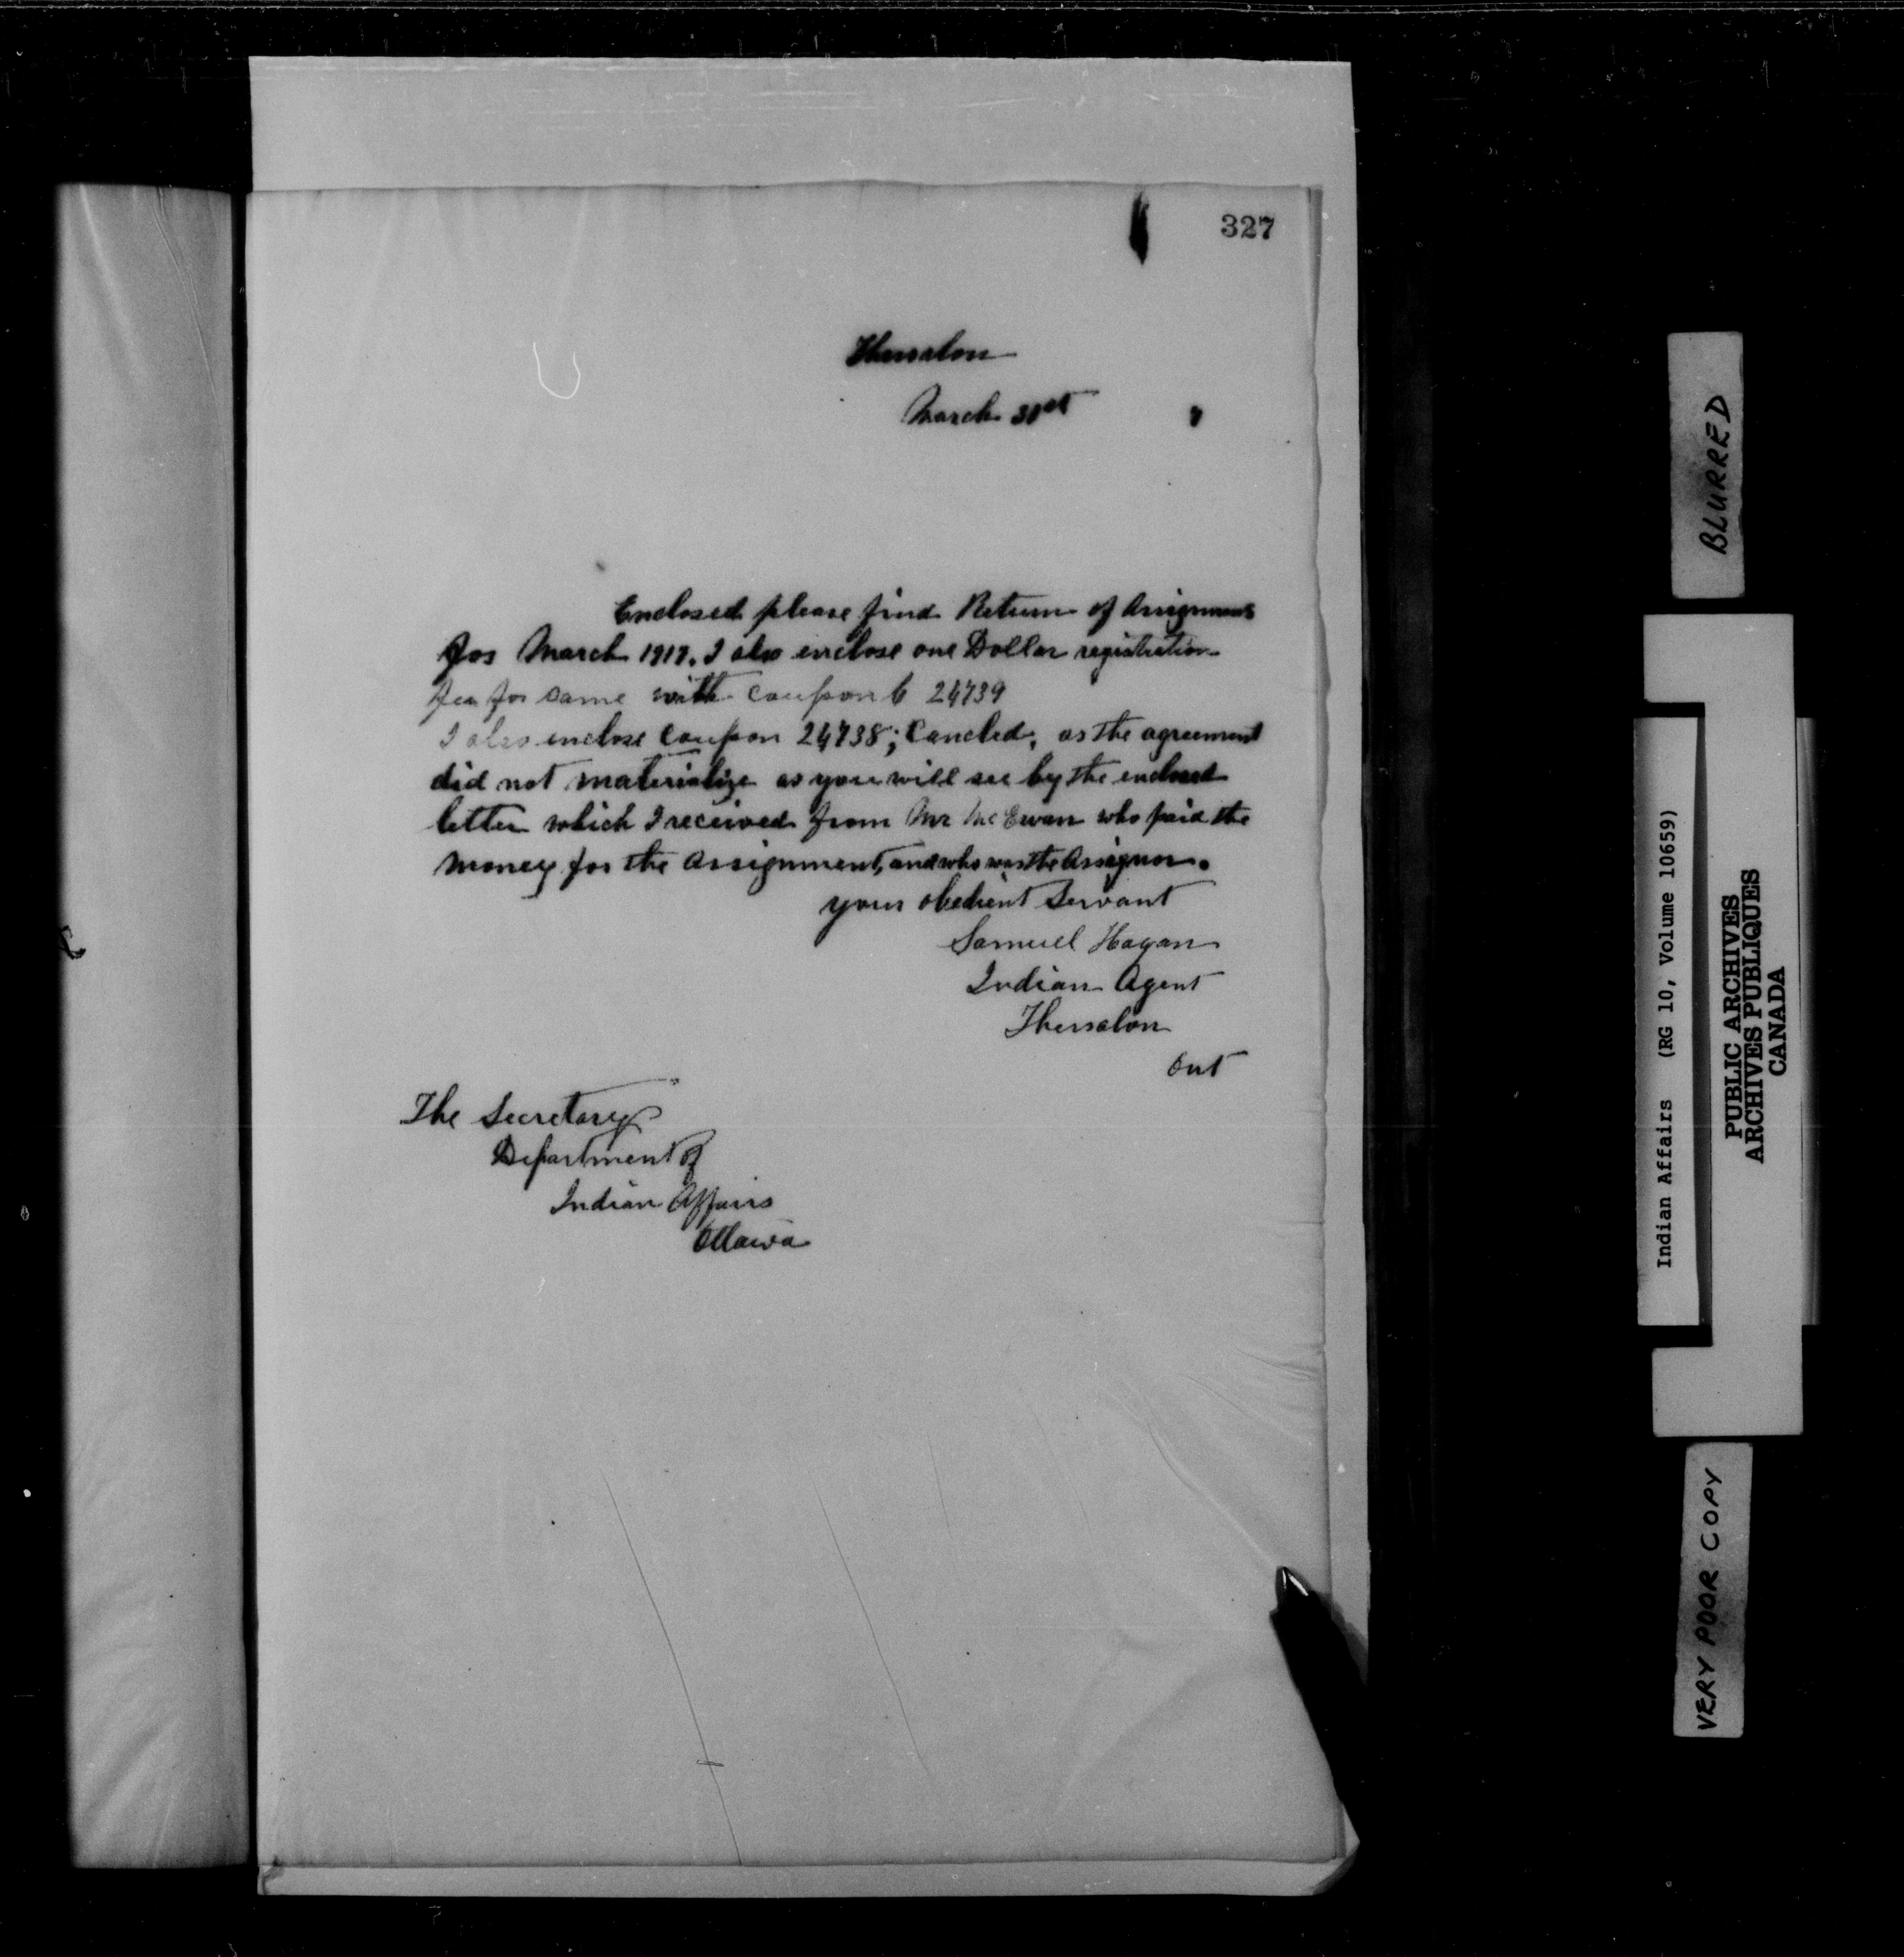 327
Thessalon
March 31st 7
Enclosed please find Return of Assignments
for March 1917. I also enclose one Dollar registration
fee for same with coupon C 24739
I also enclose Coupon 24738; Cancled, as the agreement
did not materialize as you will see by the enclosed
letter which I received from Mr McEwan who paid the
money for the Assignment, and who was the Assignor.
your obedient Servant
Samuel Hagan
Indian Agent
Thessalon
Ont
The Secretary
Department of
Indian Affairs
Ottawa
BLURRED
Indian Affairs (RG 10, Volume 10659)
PUBLIC ARCHIVES
ARCHIVES PUBLIQUES
CANADA
VERY POOR COPY